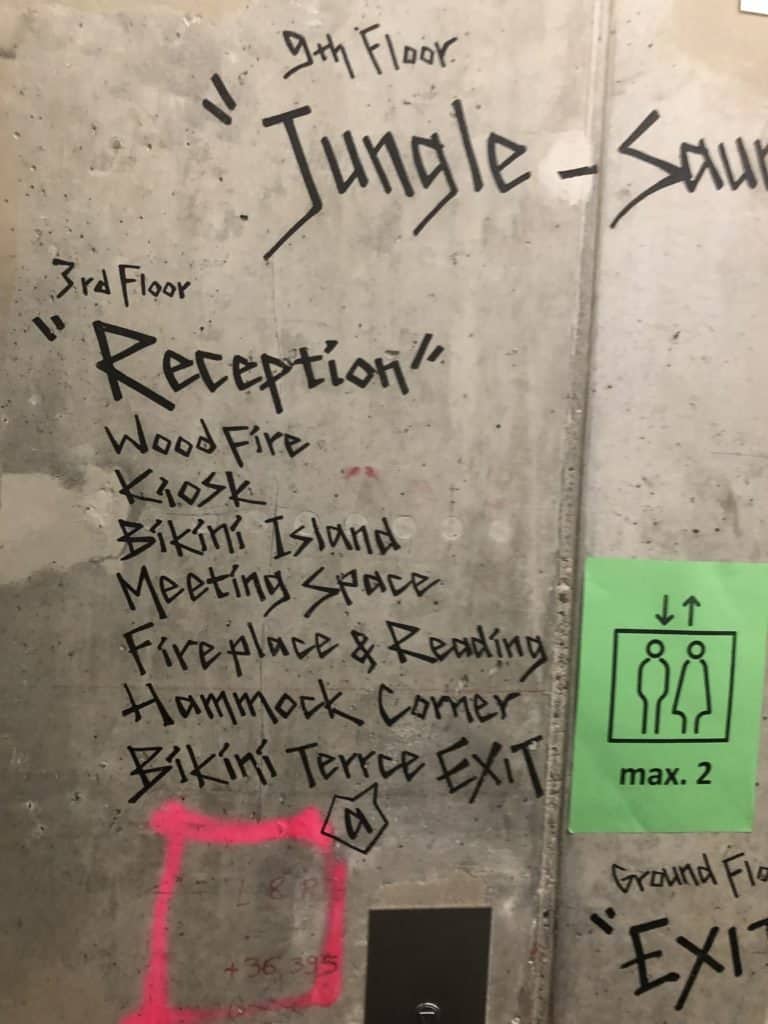 9th Floor
"Jungle-Saun
3rd Floor
"Reception"
Wood Fire
Kiosk
Bikini Island
Meeting Space
Fireplace & Reading
Hammock Corner
Bikini Terrce EXIT
a
max. 2
L & R
+36,395
Ground Flo
"EXIT